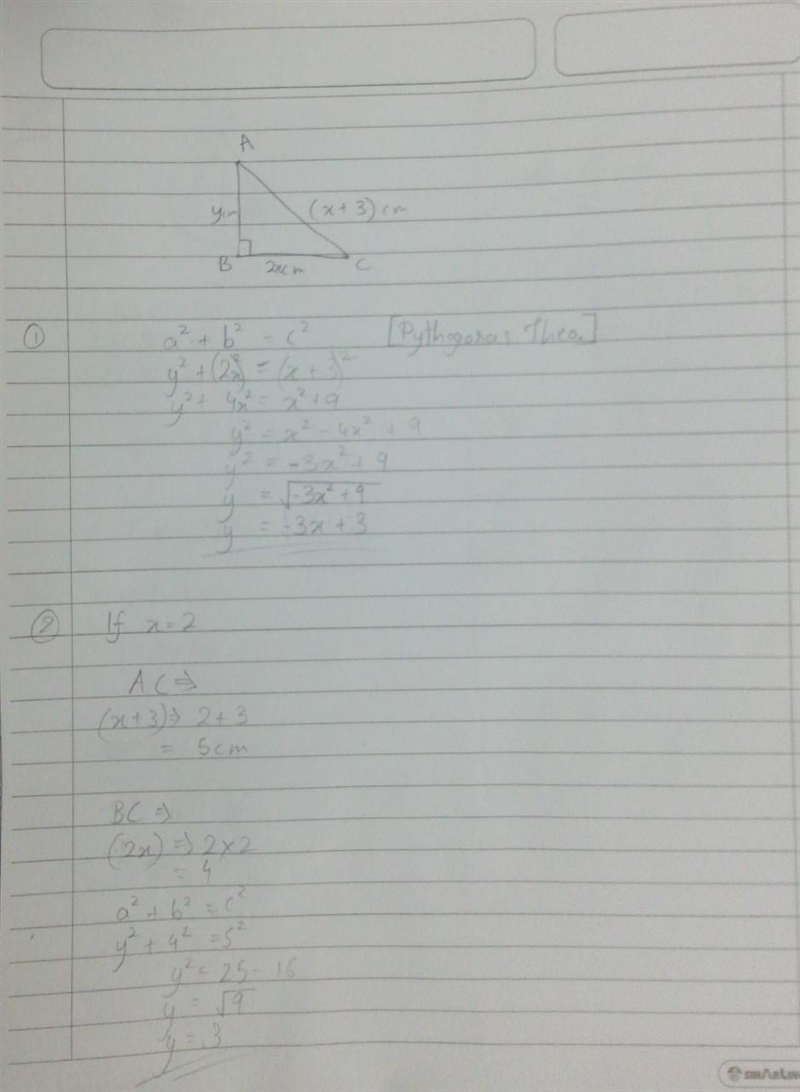 A
y cm
(x+3) cm
B
2x cm
C
① a² + b² = c² [Pythogoras Theo.]
y² + (2x)² = (x+3)²
y² + 4x² = x² + 9
y² = x² - 4x² + 9
y² = -3x² + 9
y = √-3x² + 9
y = -3x + 3
② If x = 2
AC ⇒
(x+3) ⇒ 2+3
= 5cm
BC ⇒
(2x) ⇒ 2×2
= 4
a² + b² = c²
y² + 4² = 5²
y² = 25 - 16
y = √9
y = 3